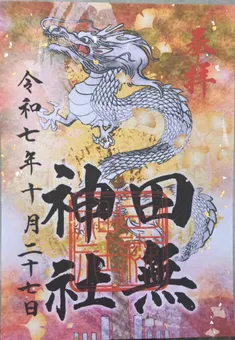 奉拝
田無
神社
令和七年十月二十七日